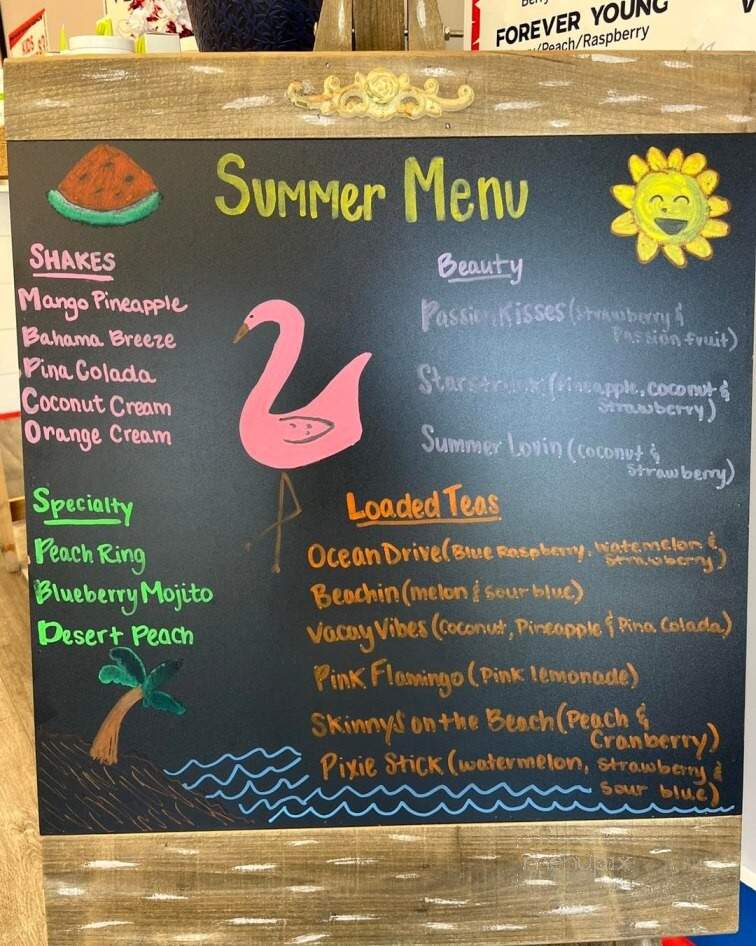 FOREVER YOUNG
/Peach/Raspberry
KIDS
Summer Menu
Shakes
Mango Pineapple
Bahama Breeze
Pina Colada
Coconut Cream
Orange Cream
Specialty
Peach Ring
Blueberry Mojito
Desert Peach
Beauty
Passion Kisses (strawberry &
Passion fruit)
Starstruck (Pineapple, coconut &
strawberry)
Summer Lovin (coconut &
strawberry)
Loaded Teas
Ocean Drive (Blue Raspberry, watemelon &
strawberry)
Beachin (melon & sour blue)
Vacay Vibes (coconut, Pineapple & Pina Colada)
Pink Flamingo (Pink lemonade)
Skinnys on the Beach (Peach &
Cranberry)
Pixie Stick (watermelon, strawberry &
sour blue)
menupix